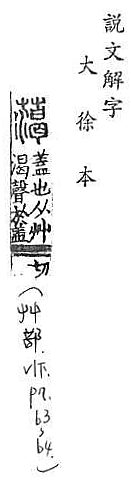 說文解字
大徐本
蓋也从艸
渴聲於蓋
切
(艸部. 下. p7. 63, 64.)